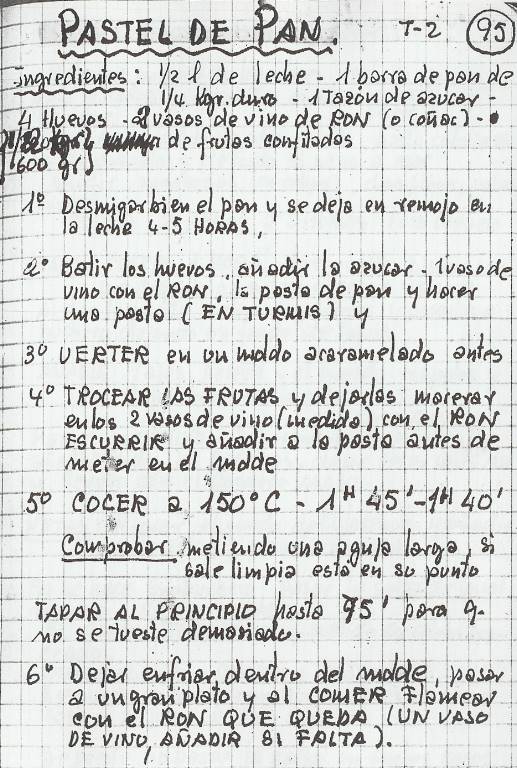 PASTEL DE PAN. T-2 95
Ingredientes: 1/2 l de leche - 1 barra de pan de
1/4 kgr. duro - 1 Tazón de azucar -
4 Huevos - 2 vasos de vino de RON (o coñac) -
de frutas confitadas
600 gr)
1º Desmigar bien el pan y se deja en remojo en
la leche 4-5 HORAS,
2º Batir los huevos, añadir la azucar - 1 vaso de
vino con el RON, la pasta de pan y hacer
una pasta (EN TURMIS) y
3º VERTER en un molde acaramelado antes
4º TROCEAR LAS FRUTAS y dejarlas macerar
en los 2 vasos de vino (medida) con el RON
ESCURRIR y añadir a la pasta antes de
meter en el molde
5º COCER a 150°C - 1H 45' - 1H 40'
Comprobar metiendo una aguja larga, si
sale limpia está en su punto
TAPAR AL PRINCIPIO hasta 75' para q.
no se tueste demasiado.
6º Dejar enfriar dentro del molde, pasar
a un gran plato y al COMER Flamear
con el RON QUE QUEDA (UN VASO
DE VINO, AÑADIR SI FALTA).